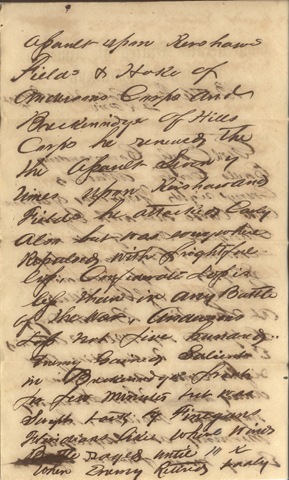 assault upon Kershaws
Fields & Hoke of
Andersons Corps and
Breckenridge of Hills
Corps he renewed the
the assault seven
times, upon Kershaw and
Fields he attacked Early
Also but was everywhere
Repulsed with frightful
loss. Confederate Loss is
less than in any Battle
of the War. Andersons
Loss not five hundred.
Enemy Gained Salient
in Breckenridge front
for few minutes but was
swept back by Finegans
Floridians Sides whole Lines
Battle raged until 10
When Enemy Retired